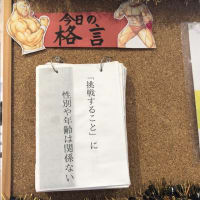 今日の、
格言
「挑戦すること」に
性別や年齢は関係ない